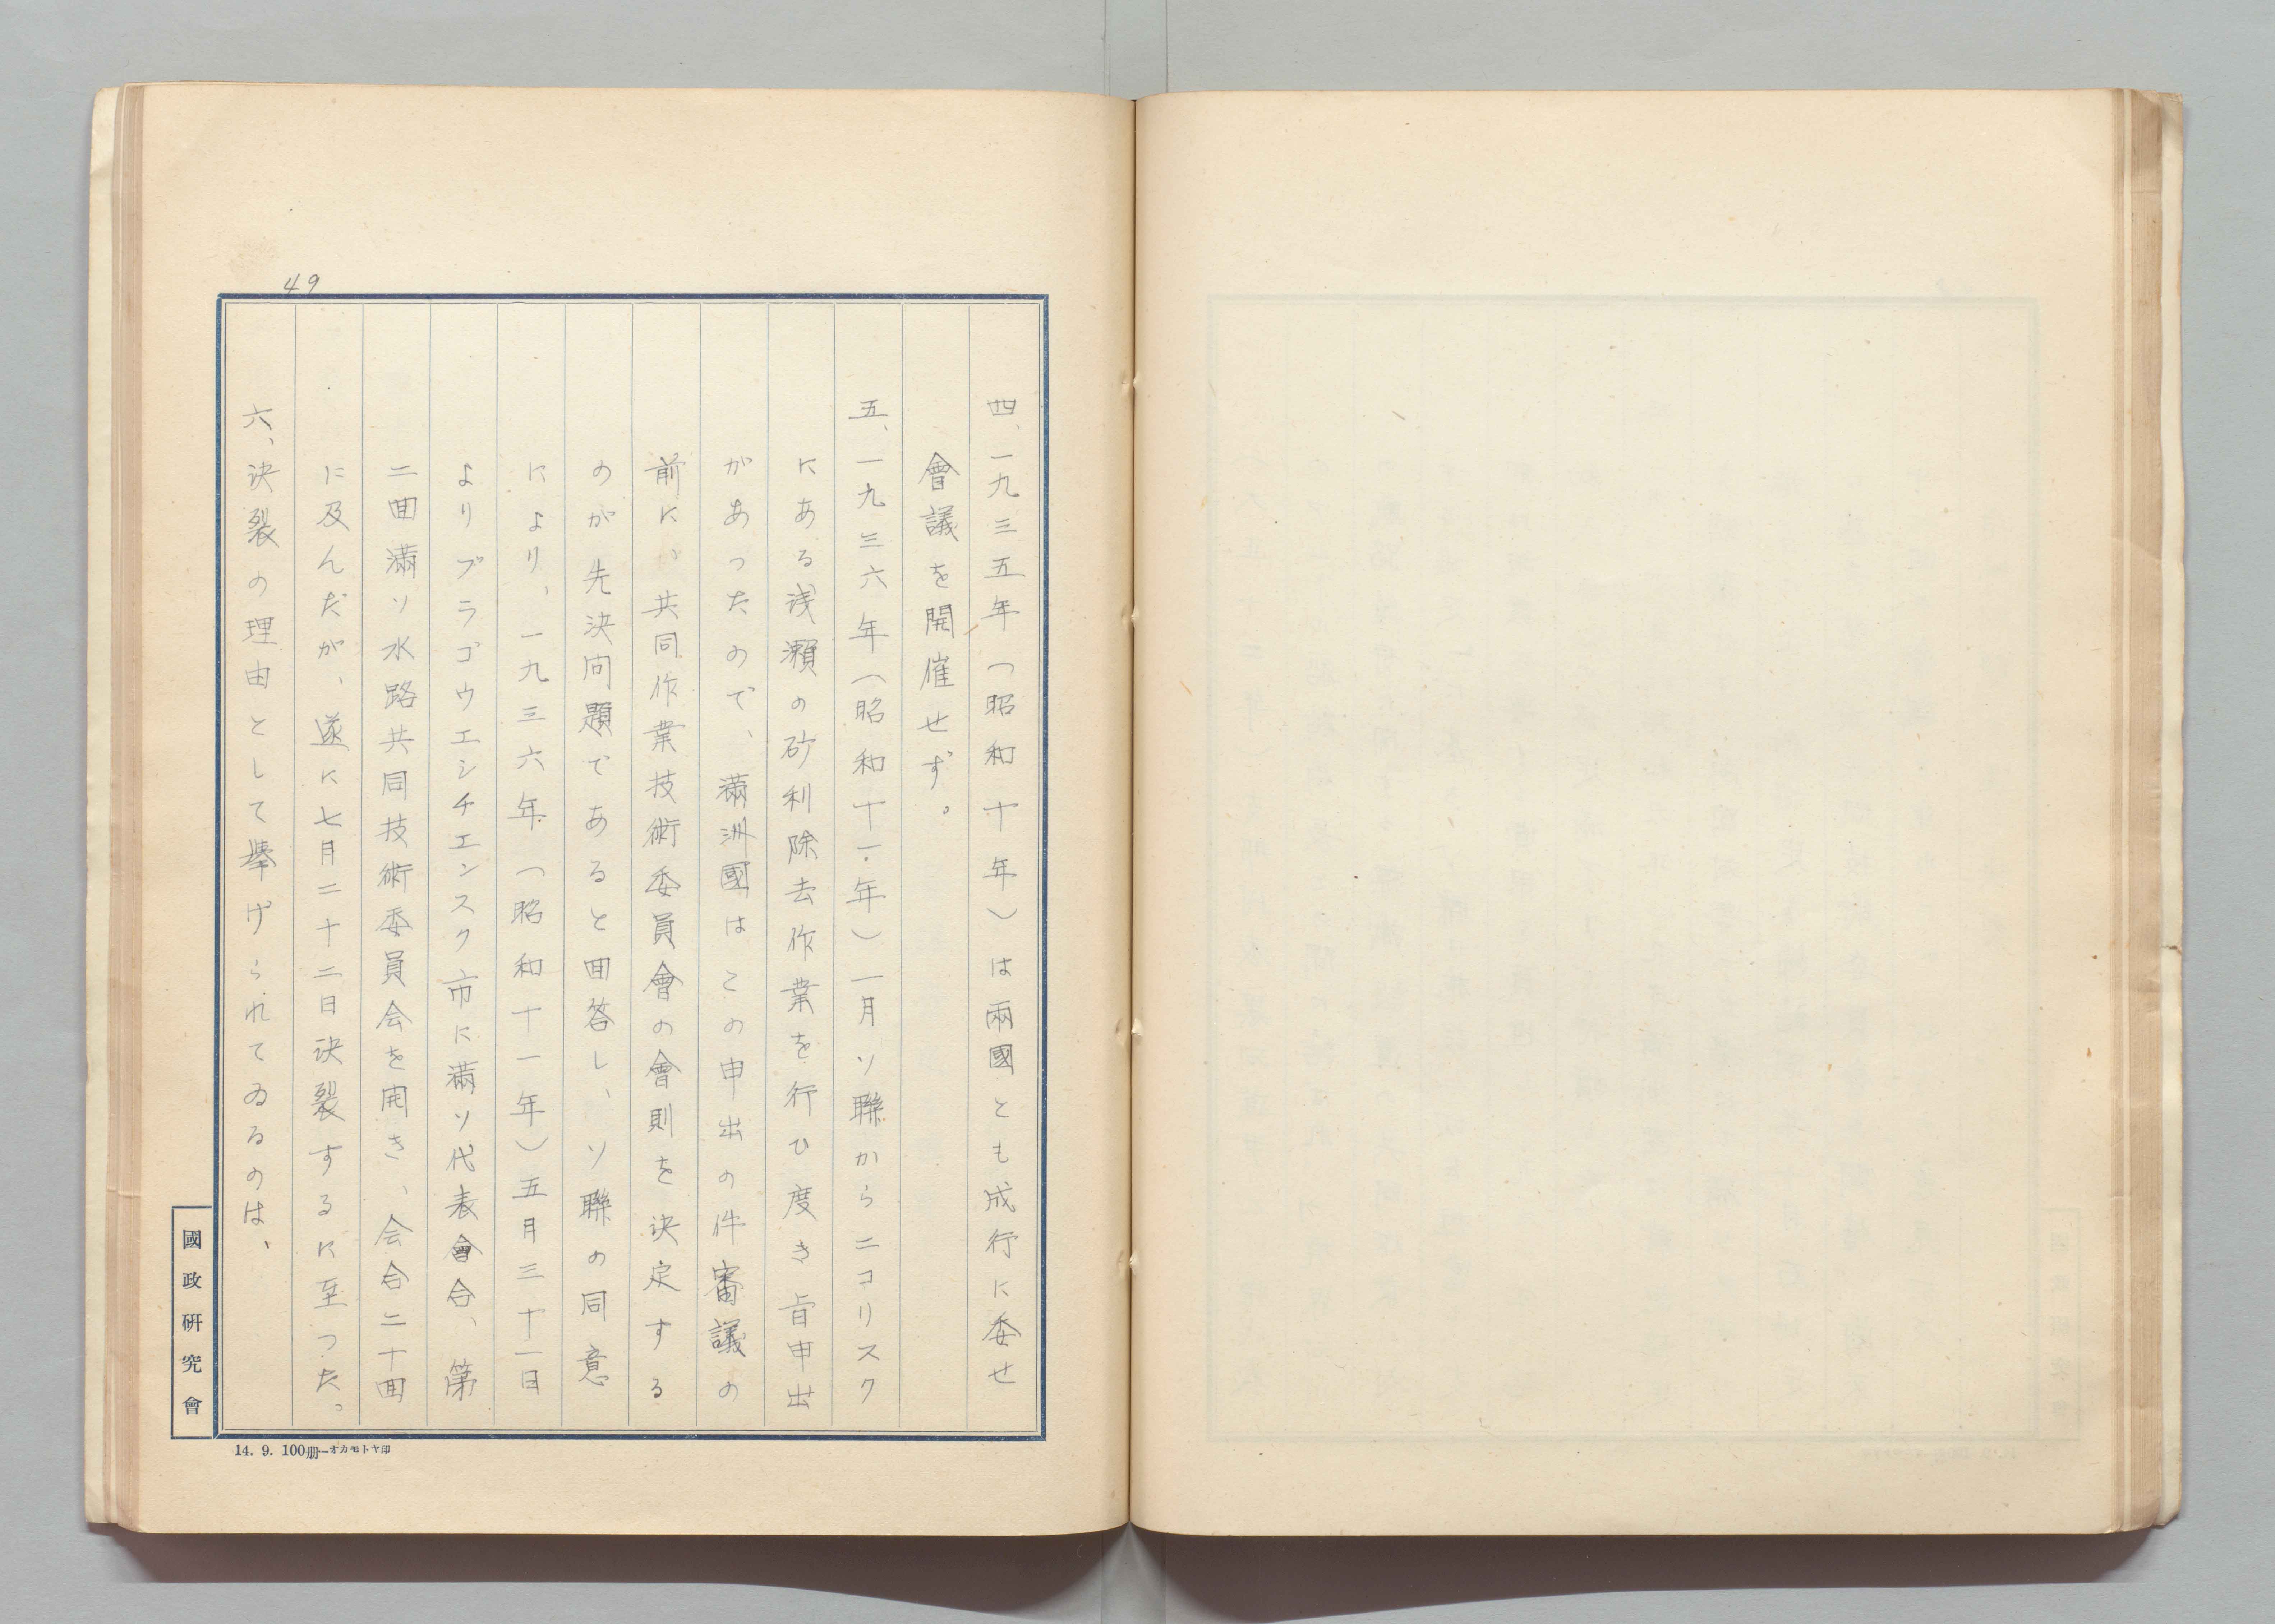 49
四、一九三五年（昭和十年）は兩國とも成行に委せ
會議を開催せず。
五、一九三六年（昭和十一年）一月ソ聯からニコリスク
にある浅瀬の砂利除去作業を行ひ度き旨申出
があったので、滿洲國はこの申出の件審議の
前に、共同作業技術委員會の會則を決定する
のが先決问題であると囬答し、ソ聯の同意
により、一九三六年（昭和十一年）五月三十一日
よりブラゴウエシチエンスク市に滿ソ代表會合、第
二囬滿ソ水路共同技術委員会を開き、会合二十囬
に及んだが、遂に七月二十二日決裂するに至つた。
六、決裂の理由として擧げられてゐるのは、
國政硏究會
14. 9. 100册—オカモトヤ印